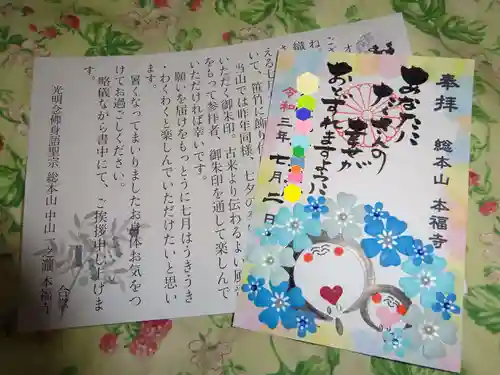 奉拝 総本山 本福寺
あなたに
たくさんの
しあわせが
おとずれますように
令和三年七月二日
いて、笹竹に飾り付
当山では昨年同様、七夕の
いただく御朱印。古来より伝わるよい風習
をもって参拝者、御朱印を通して楽しんで
いただければ幸いです。
願いを届けるをもっとうに七月はうきうき
・わくわくと楽しんでいただけたいと思い
ます。
暑くなってまいりましたお身体お気をつ
けてお過ごしください。
略儀ながら書中にて、ご挨拶申し上げま
す。
光明念佛身語聖宗 総本山 中山 本福寺
合掌